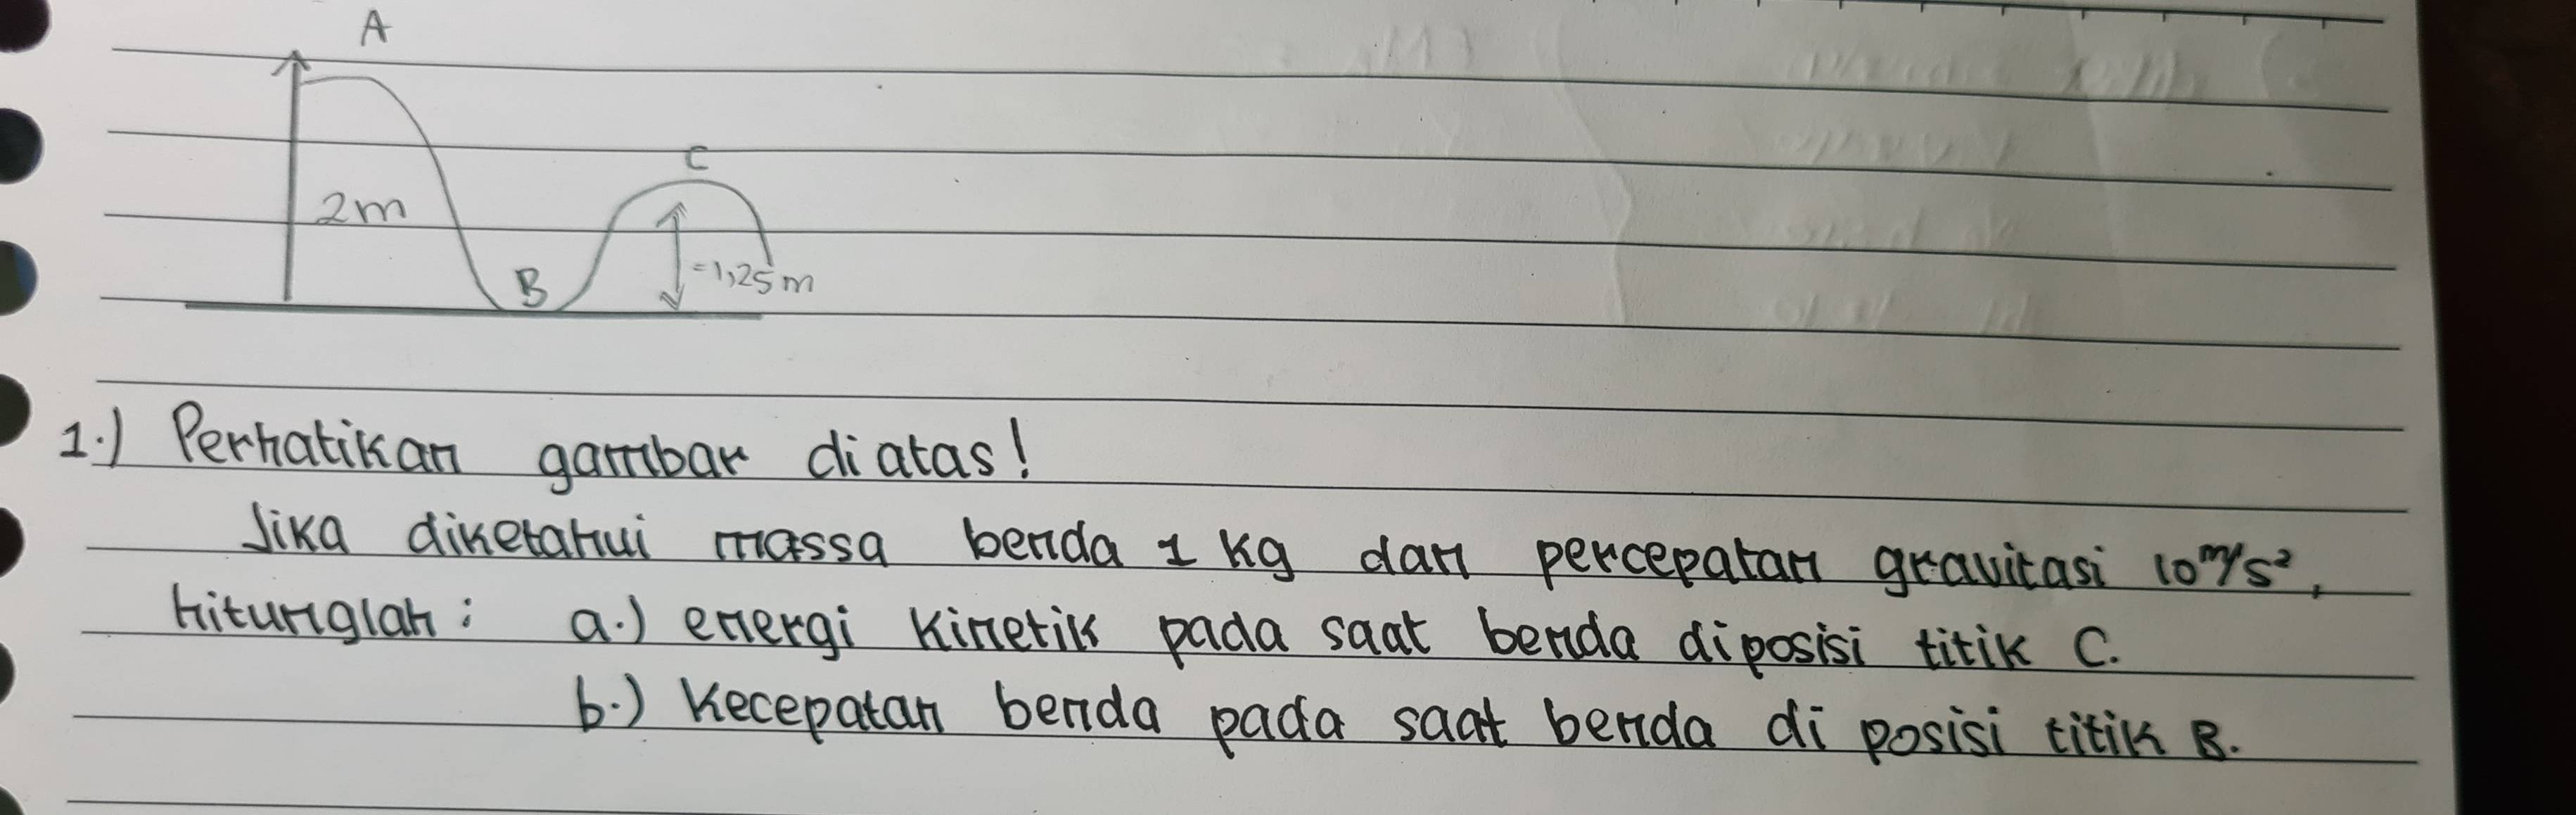 A
C
2m
B
=1,25m
1.) Perhatikan gambar diatas!
Jika diketahui massa benda 1 kg dan percepatan gravitasi 10 m/s²,
hitunglah : a.) energi kinetik pada saat benda diposisi titik C.
b.) Kecepatan benda pada saat benda di posisi titik B.